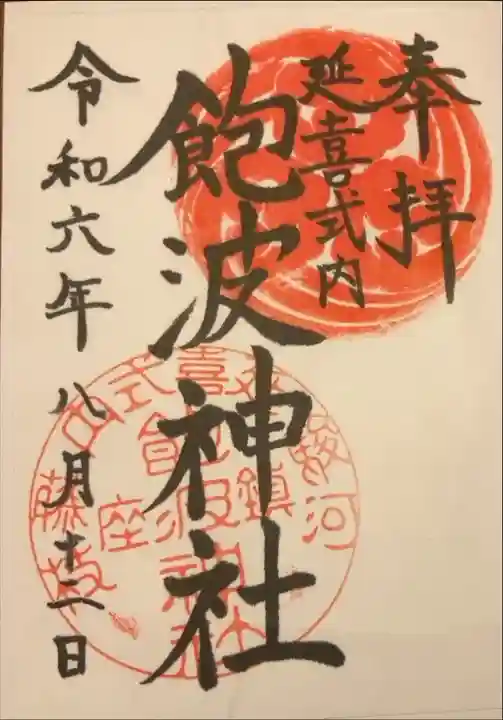 奉拝
延喜式内
飽波神社
令和六年八月十二日
駿河
延喜式内
藤枝
鎮座
飽波神社